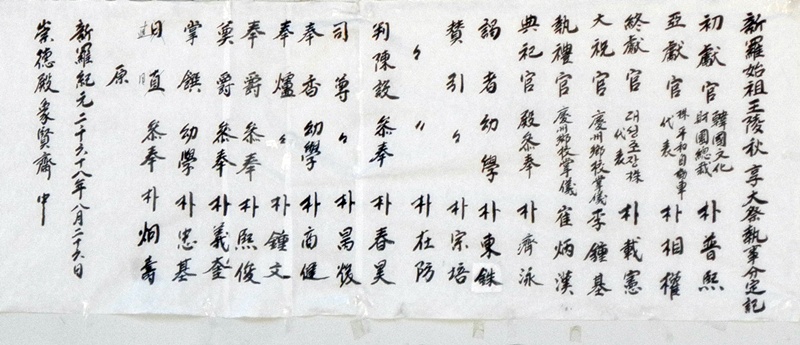 新羅始祖王陵秋享大祭執事分定記
初獻官 韓國文化財團總裁 朴普熙
亞獻官 株平和自動車代表 朴相權
終獻官 대신조강株代表 朴載憲
大祝官 慶州鄕校掌儀 李鍾基
執禮官 慶州鄕校掌儀 崔炳漢
典祀官 殿參奉 朴濟泳
謁者 幼學 朴東銖
贊引 〃 朴宗培
〃 〃 朴在防
判陳設 參奉 朴春昊
司尊 〃 朴昺俊
奉香 幼學 朴商健
奉爐 〃 朴鍾文
奉爵 參奉 朴熙俊
奠爵 參奉 朴義奎
掌饌 幼學 朴忠基
參奉 朴炯壽
原
新羅紀元二千六十八年八月二十六日
崇德殿象賢齋 中